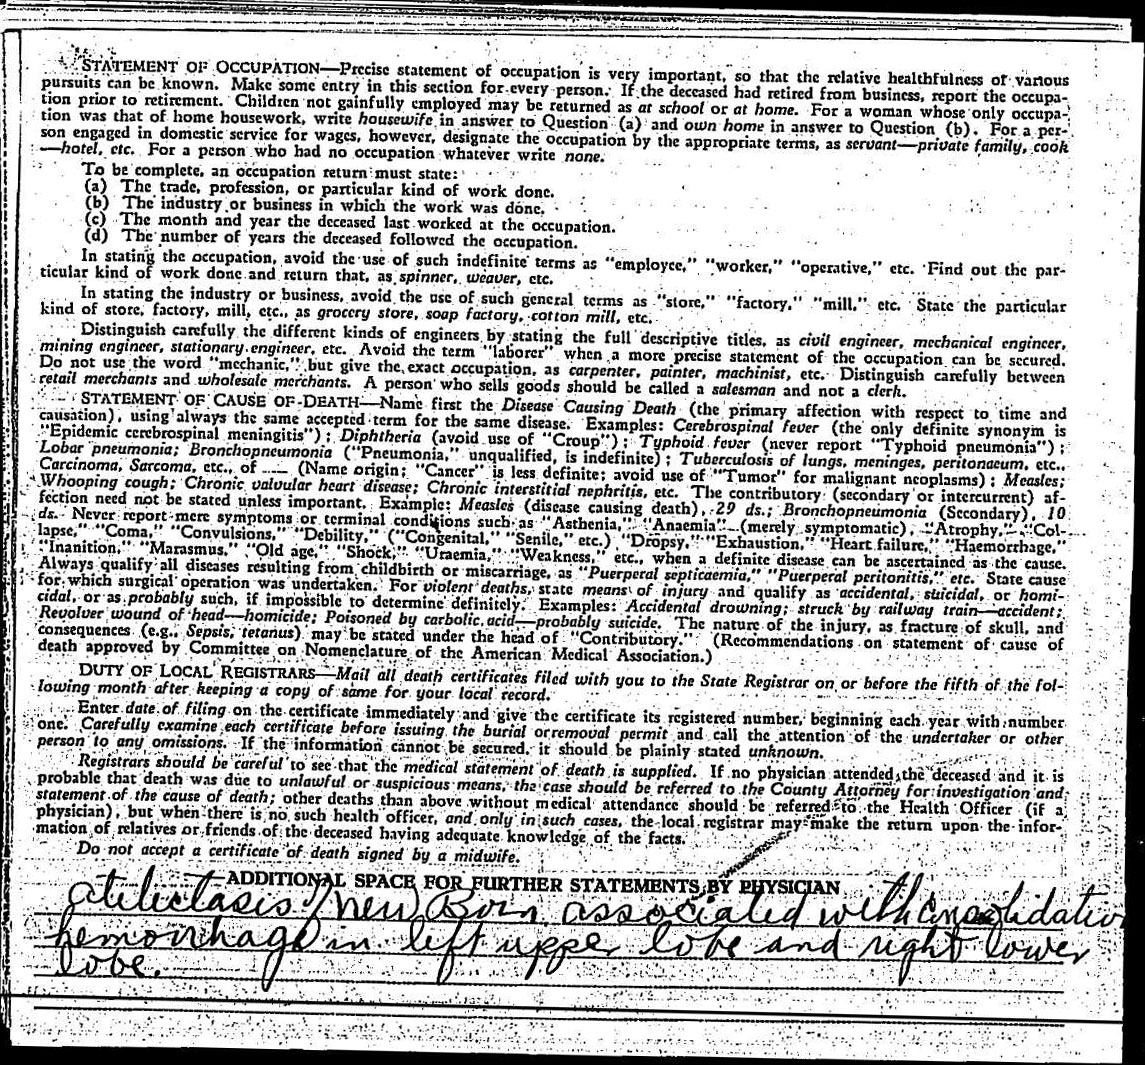 STATEMENT OF OCCUPATION—Precise statement of occupation is very important, so that the relative healthfulness of various
pursuits can be known. Make some entry in this section for every person. If the deceased had retired from business, report the occupa-
tion prior to retirement. Children not gainfully employed may be returned as at school or at home. For a woman whose only occupa-
tion was that of home housework, write housewife in answer to Question (a) and own home in answer to Question (b). For a per-
son engaged in domestic service for wages, however, designate the occupation by the appropriate terms, as servant—private family, cook
—hotel, etc. For a person who had no occupation whatever write none.
To be complete, an occupation return must state:
(a) The trade, profession, or particular kind of work done.
(b) The industry or business in which the work was done.
(c) The month and year the deceased last worked at the occupation.
(d) The number of years the deceased followed the occupation.
In stating the occupation, avoid the use of such indefinite terms as "employee," "worker," "operative," etc. Find out the par-
ticular kind of work done and return that, as spinner, weaver, etc.
In stating the industry or business, avoid the use of such general terms as "store," "factory," "mill," etc. State the particular
kind of store, factory, mill, etc., as grocery store, soap factory, cotton mill, etc.
Distinguish carefully the different kinds of engineers by stating the full descriptive titles, as civil engineer, mechanical engineer,
mining engineer, stationary engineer, etc. Avoid the term "laborer" when a more precise statement of the occupation can be secured.
Do not use the word "mechanic," but give the exact occupation, as carpenter, painter, machinist, etc. Distinguish carefully between
retail merchants and wholesale merchants. A person who sells goods should be called a salesman and not a clerk.
STATEMENT OF CAUSE OF DEATH—Name first the Disease Causing Death (the primary affection with respect to time and
causation), using always the same accepted term for the same disease. Examples: Cerebrospinal fever (the only definite synonym is
"Epidemic cerebrospinal meningitis"); Diphtheria (avoid use of "Croup"); Typhoid fever (never report "Typhoid pneumonia");
Lobar pneumonia; Bronchopneumonia ("Pneumonia," unqualified, is indefinite); Tuberculosis of lungs, meninges, peritonaeum, etc.,
Carcinoma, Sarcoma, etc., of ...... (Name origin; "Cancer" is less definite; avoid use of "Tumor" for malignant neoplasms); Measles;
Whooping cough; Chronic valvular heart disease; Chronic interstitial nephritis, etc. The contributory (secondary or intercurrent) af-
fection need not be stated unless important. Example: Measles (disease causing death), 29 ds.; Bronchopneumonia (Secondary), 10
ds. Never report mere symptoms or terminal conditions such as "Asthenia," "Anaemia" (merely symptomatic), "Atrophy," "Col-
lapse," "Coma," "Convulsions," "Debility," ("Congenital," "Senile," etc.) "Dropsy," "Exhaustion," "Heart failure," "Haemorrhage,"
"Inanition," "Marasmus," "Old age," "Shock," "Uraemia," "Weakness," etc., when a definite disease can be ascertained as the cause.
Always qualify all diseases resulting from childbirth or miscarriage, as "Puerperal septicaemia," "Puerperal peritonitis," etc. State cause
for which surgical operation was undertaken. For violent deaths, state means of injury and qualify as accidental, suicidal, or homi-
cidal, or as probably such, if impossible to determine definitely. Examples: Accidental drowning; struck by railway train—accident;
Revolver wound of head—homicide; Poisoned by carbolic acid—probably suicide. The nature of the injury, as fracture of skull, and
consequences (e.g., Sepsis, tetanus) may be stated under the head of "Contributory." (Recommendations on statement of cause of
death approved by Committee on Nomenclature of the American Medical Association.)
DUTY OF LOCAL REGISTRARS—Mail all death certificates filed with you to the State Registrar on or before the fifth of the fol-
lowing month after keeping a copy of same for your local record.
Enter date of filing on the certificate immediately and give the certificate its registered number, beginning each year with number
one. Carefully examine each certificate before issuing the burial or removal permit and call the attention of the undertaker or other
person to any omissions. If the information cannot be secured, it should be plainly stated unknown.
Registrars should be careful to see that the medical statement of death is supplied. If no physician attended the deceased and it is
probable that death was due to unlawful or suspicious means, the case should be referred to the County Attorney for investigation and
statement of the cause of death; other deaths than above without medical attendance should be referred to the Health Officer (if a
physician), but when there is no such health officer, and only in such cases, the local registrar may make the return upon the infor-
mation of relatives or friends of the deceased having adequate knowledge of the facts.
Do not accept a certificate of death signed by a midwife.
ADDITIONAL SPACE FOR FURTHER STATEMENTS BY PHYSICIAN
atelectasis New Born associated with consolidation
hemorrhage in left upper lobe and right lower
lobe.